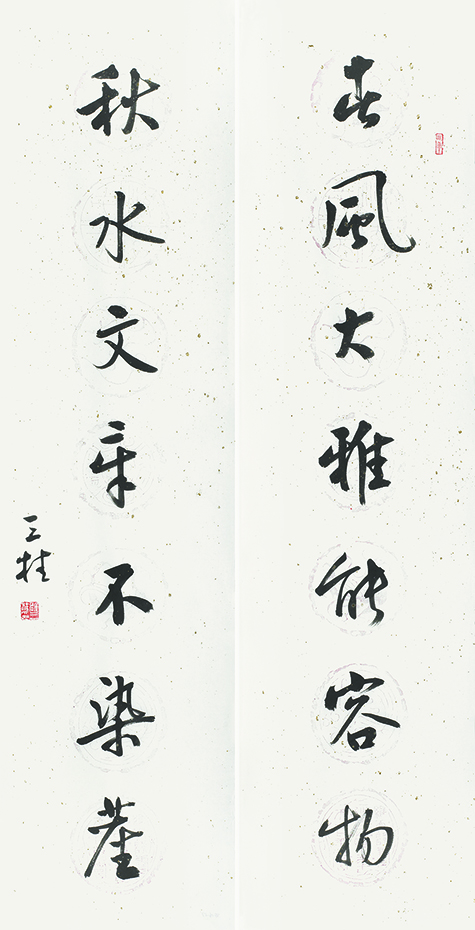 春風大雅能容物
秋水文章不染塵
三桂